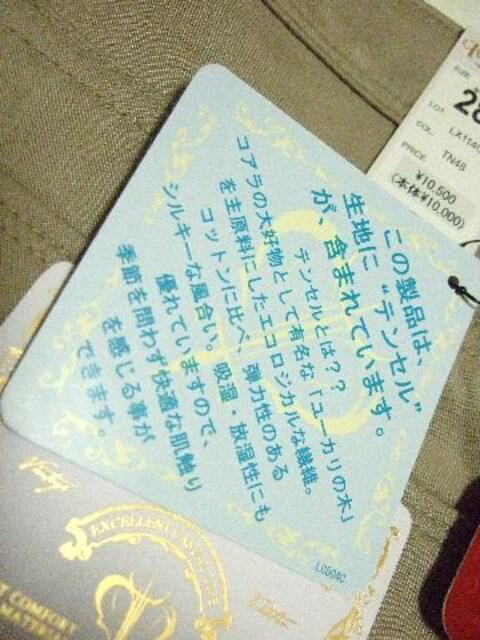 この製品は、
生地に“テンセル”
が、含まれています。
テンセルとは？？
コアラの大好物として有名な「ユーカリの木」
を主原料にしたエコロジカルな繊維。
コットンに比べ、弾力性のある
シルキーな風合い。吸湿・放湿性にも
優れていますので、
季節を問わず快適な肌触り
を感じる事が
できます。
LC5040
SIZE
28
LOT LX1140
COL. TN48
PRICE
¥10,500
(本体¥10,000)
Vintage
COMFORT